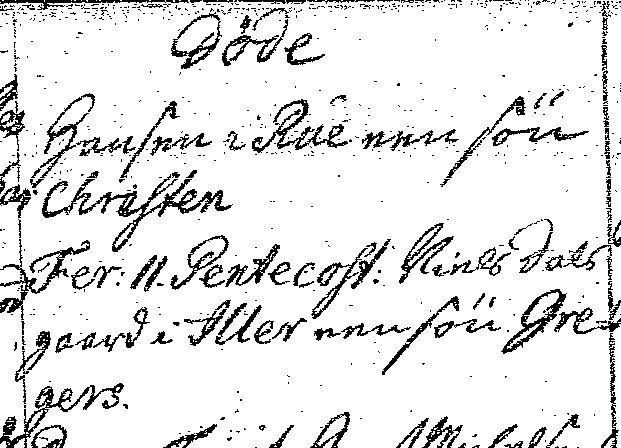 Döde
Hansen i Rüe een sön
Christen
Fer: II. Pentecost: Niels dals
gaard i Aller een sön Gre
gers.